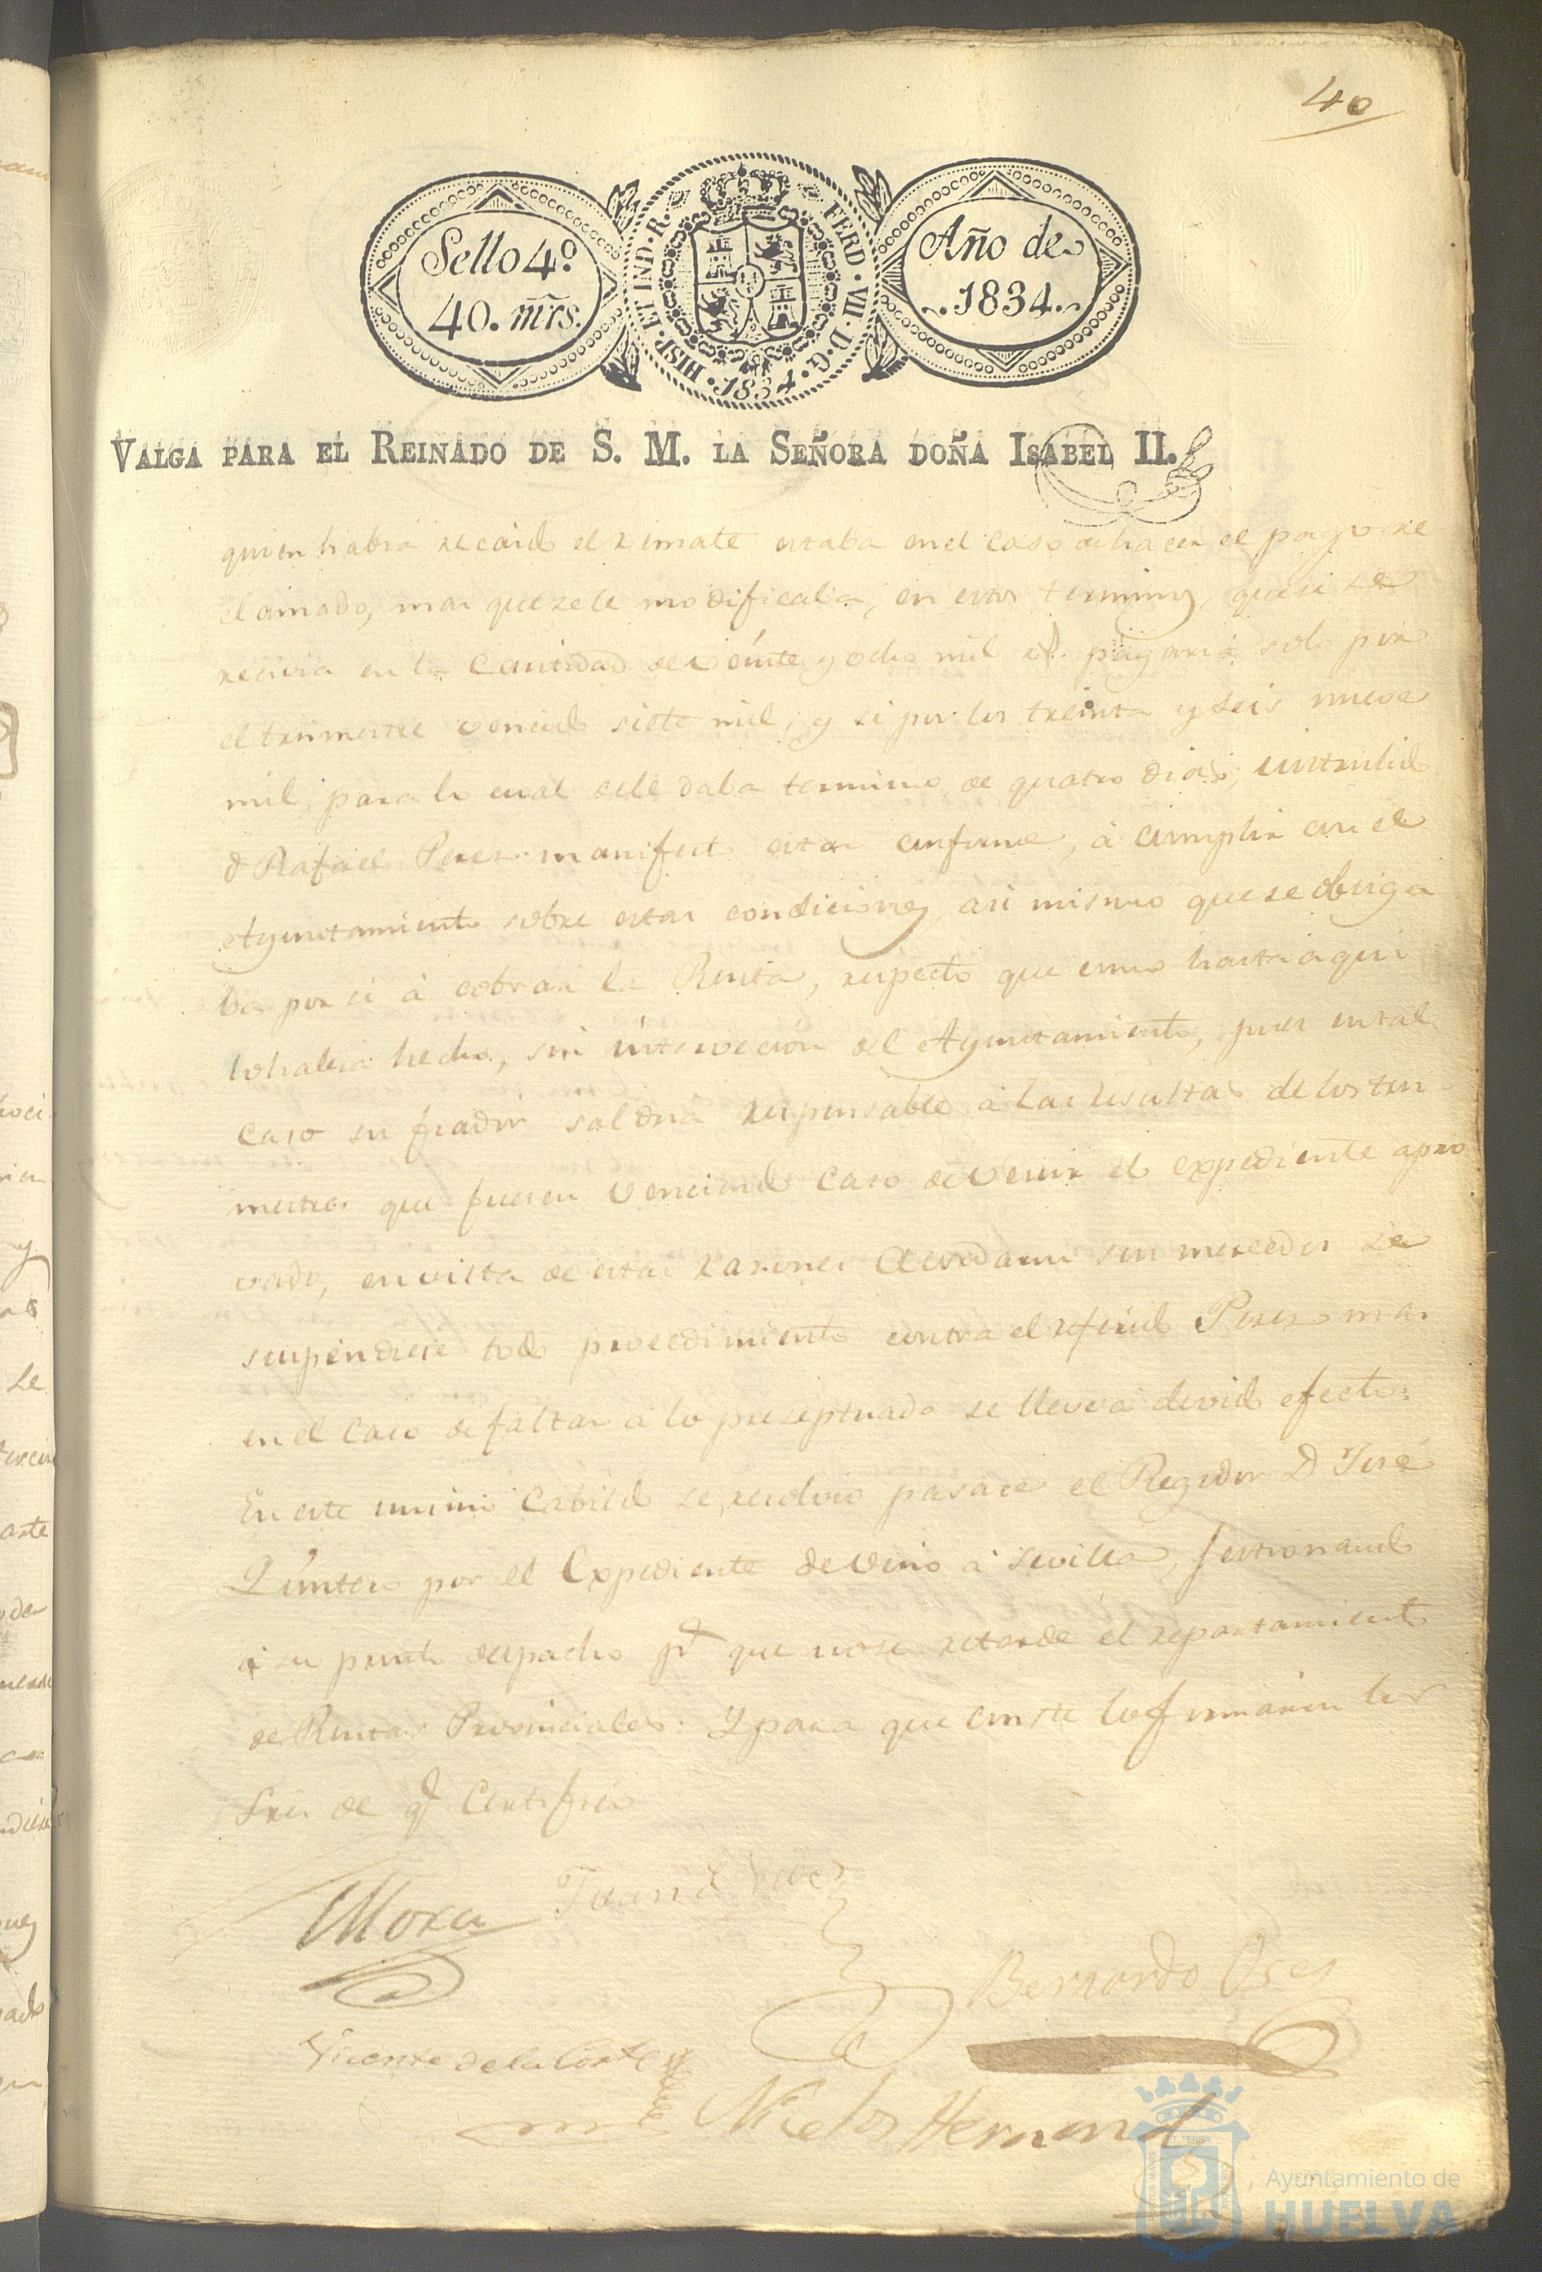 40
Sello 4º
40. mrs.
HISP. ET IND. R. FERD. VII. D. G. 1834.
Año de
1834.
VALGA PARA EL REINADO DE S. M. LA SEÑORA DOÑA ISABEL II.
quien habia recaido el remate estaba en el caso de hacer el pago re
clamado, mas que se le modificaba, en estos terminos, que si se
recivia en la Cantidad de veinte y ocho mil rs. pagaria solo por
el trimestre vencido siete mil, y si por los treinta y seis nueve
mil, para lo cual se le daba termino de quatro dias
d Rafael Perez manifestó estar conforme, á cumplir con el
Ayuntamiento sobre estas condiciones, asi mismo que se obliga
ba por si á cobrar la Renta, respecto que como hasta aqui
lo habia hecho, sin intervecion del Ayuntamiento, pues en tal
caso su fiador saldria responsable á las resultas de los tri
mestres que fuesen venciendo caso de venir el expediente apro
vado, en vista de estas razones Acordaron sus mercedes se
suspendiese todo procedimiento contra el referido Perez mas
en el caso de faltar á lo preseptuado se lleve á devido efecto:
En este mismo Cabildo se resolvio pasace el Regidor D José
Quintero por el Expediente de vino á Sevilla, jestionando
á su pronto despacho pª que no se retarde el repartimiento
de Rentas Provinciales: Y para que conste lo firmaron los
Sres de q Certifico
Mora
Juan
Bernardo Oses
Vicente de la Corte
Nicolas Hernand
Ayuntamiento de
HUELVA